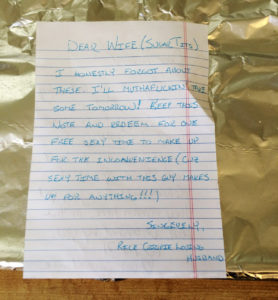 Dear Wife (Sugar Tits)
I honestly forgot about
these. I'll muthafuckin' buy
some tomorrow! Keep this
note and redeem for one
free sexy time to make up
for the inconvenience (cuz
sexy time with this guy makes
up for anything!!!)
Sincerely,
Cookie Loving
Husband